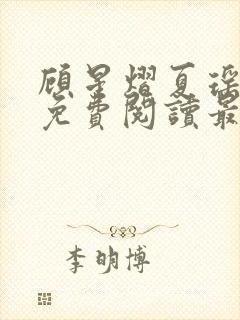 顾星熠夏瑶
免費閱讀最
李明博